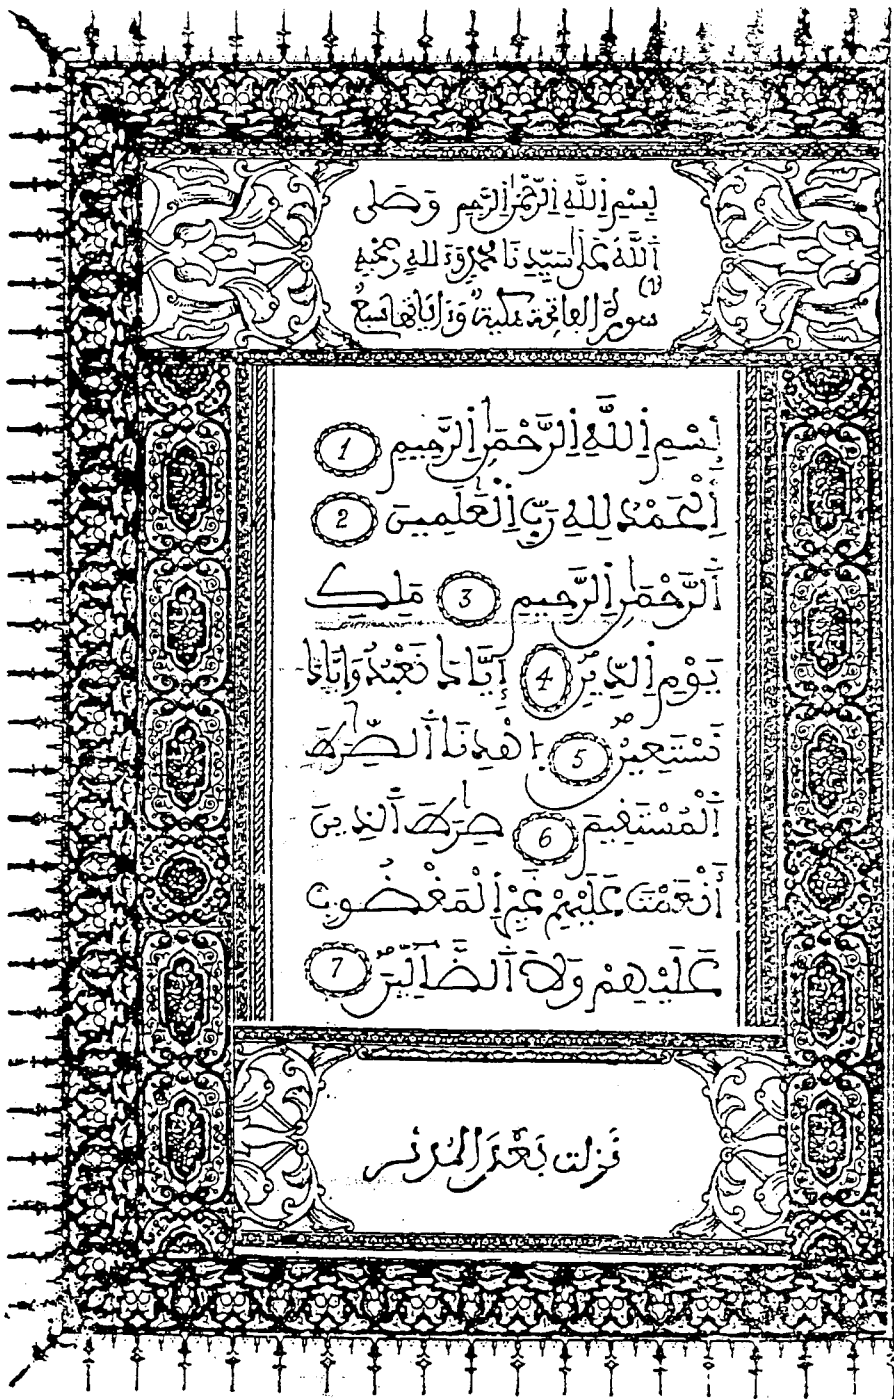 بِسْمِ اِ۬للَّهِ اِ۬لرَّحْمَٰنِ اِ۬لرَّحِيمِ وَصَلَّى
اَ۬للَّهُ عَلَىٰ سَيِّدِنَا مُحَمَّدٍ وَءَالِهِ وَصَحْبِهِ
سُورَةُ اُ۬لْفَاتِحَةِ مَكِّيَّةٌ وَءَايَاتُهَا سَبْعٌ (1)
بِسْمِ اِ۬للَّهِ اِ۬لرَّحْمَٰنِ اِ۬لرَّحِيمِ 1
اِ۬لْحَمْدُ لِلهِ رَبِّ اِ۬لْعَٰلَمِينَ 2
اَ۬لرَّحْمَٰنِ اِ۬لرَّحِيمِ 3 مَلِكِ
يَوْمِ اِ۬لدِّينِ 4 إِيَّاكَ نَعْبُدُ وَإِيَّاكَ
نَسْتَعِينُ 5 اَ۪هْدِنَا اَ۬لصِّرَٰطَ
اَ۬لْمُسْتَقِيمَ 6 صِرَٰطَ اَ۬لذِينَ
أَنْعَمْتَ عَلَيْهِمْ غَيْرِ اِ۬لْمَغْضُوبِ
عَلَيْهِمْ وَلَا اَ۬لضَّآلِّينَ 7
نَزَلَتْ بَعْدَ الْمُدَّثِّر